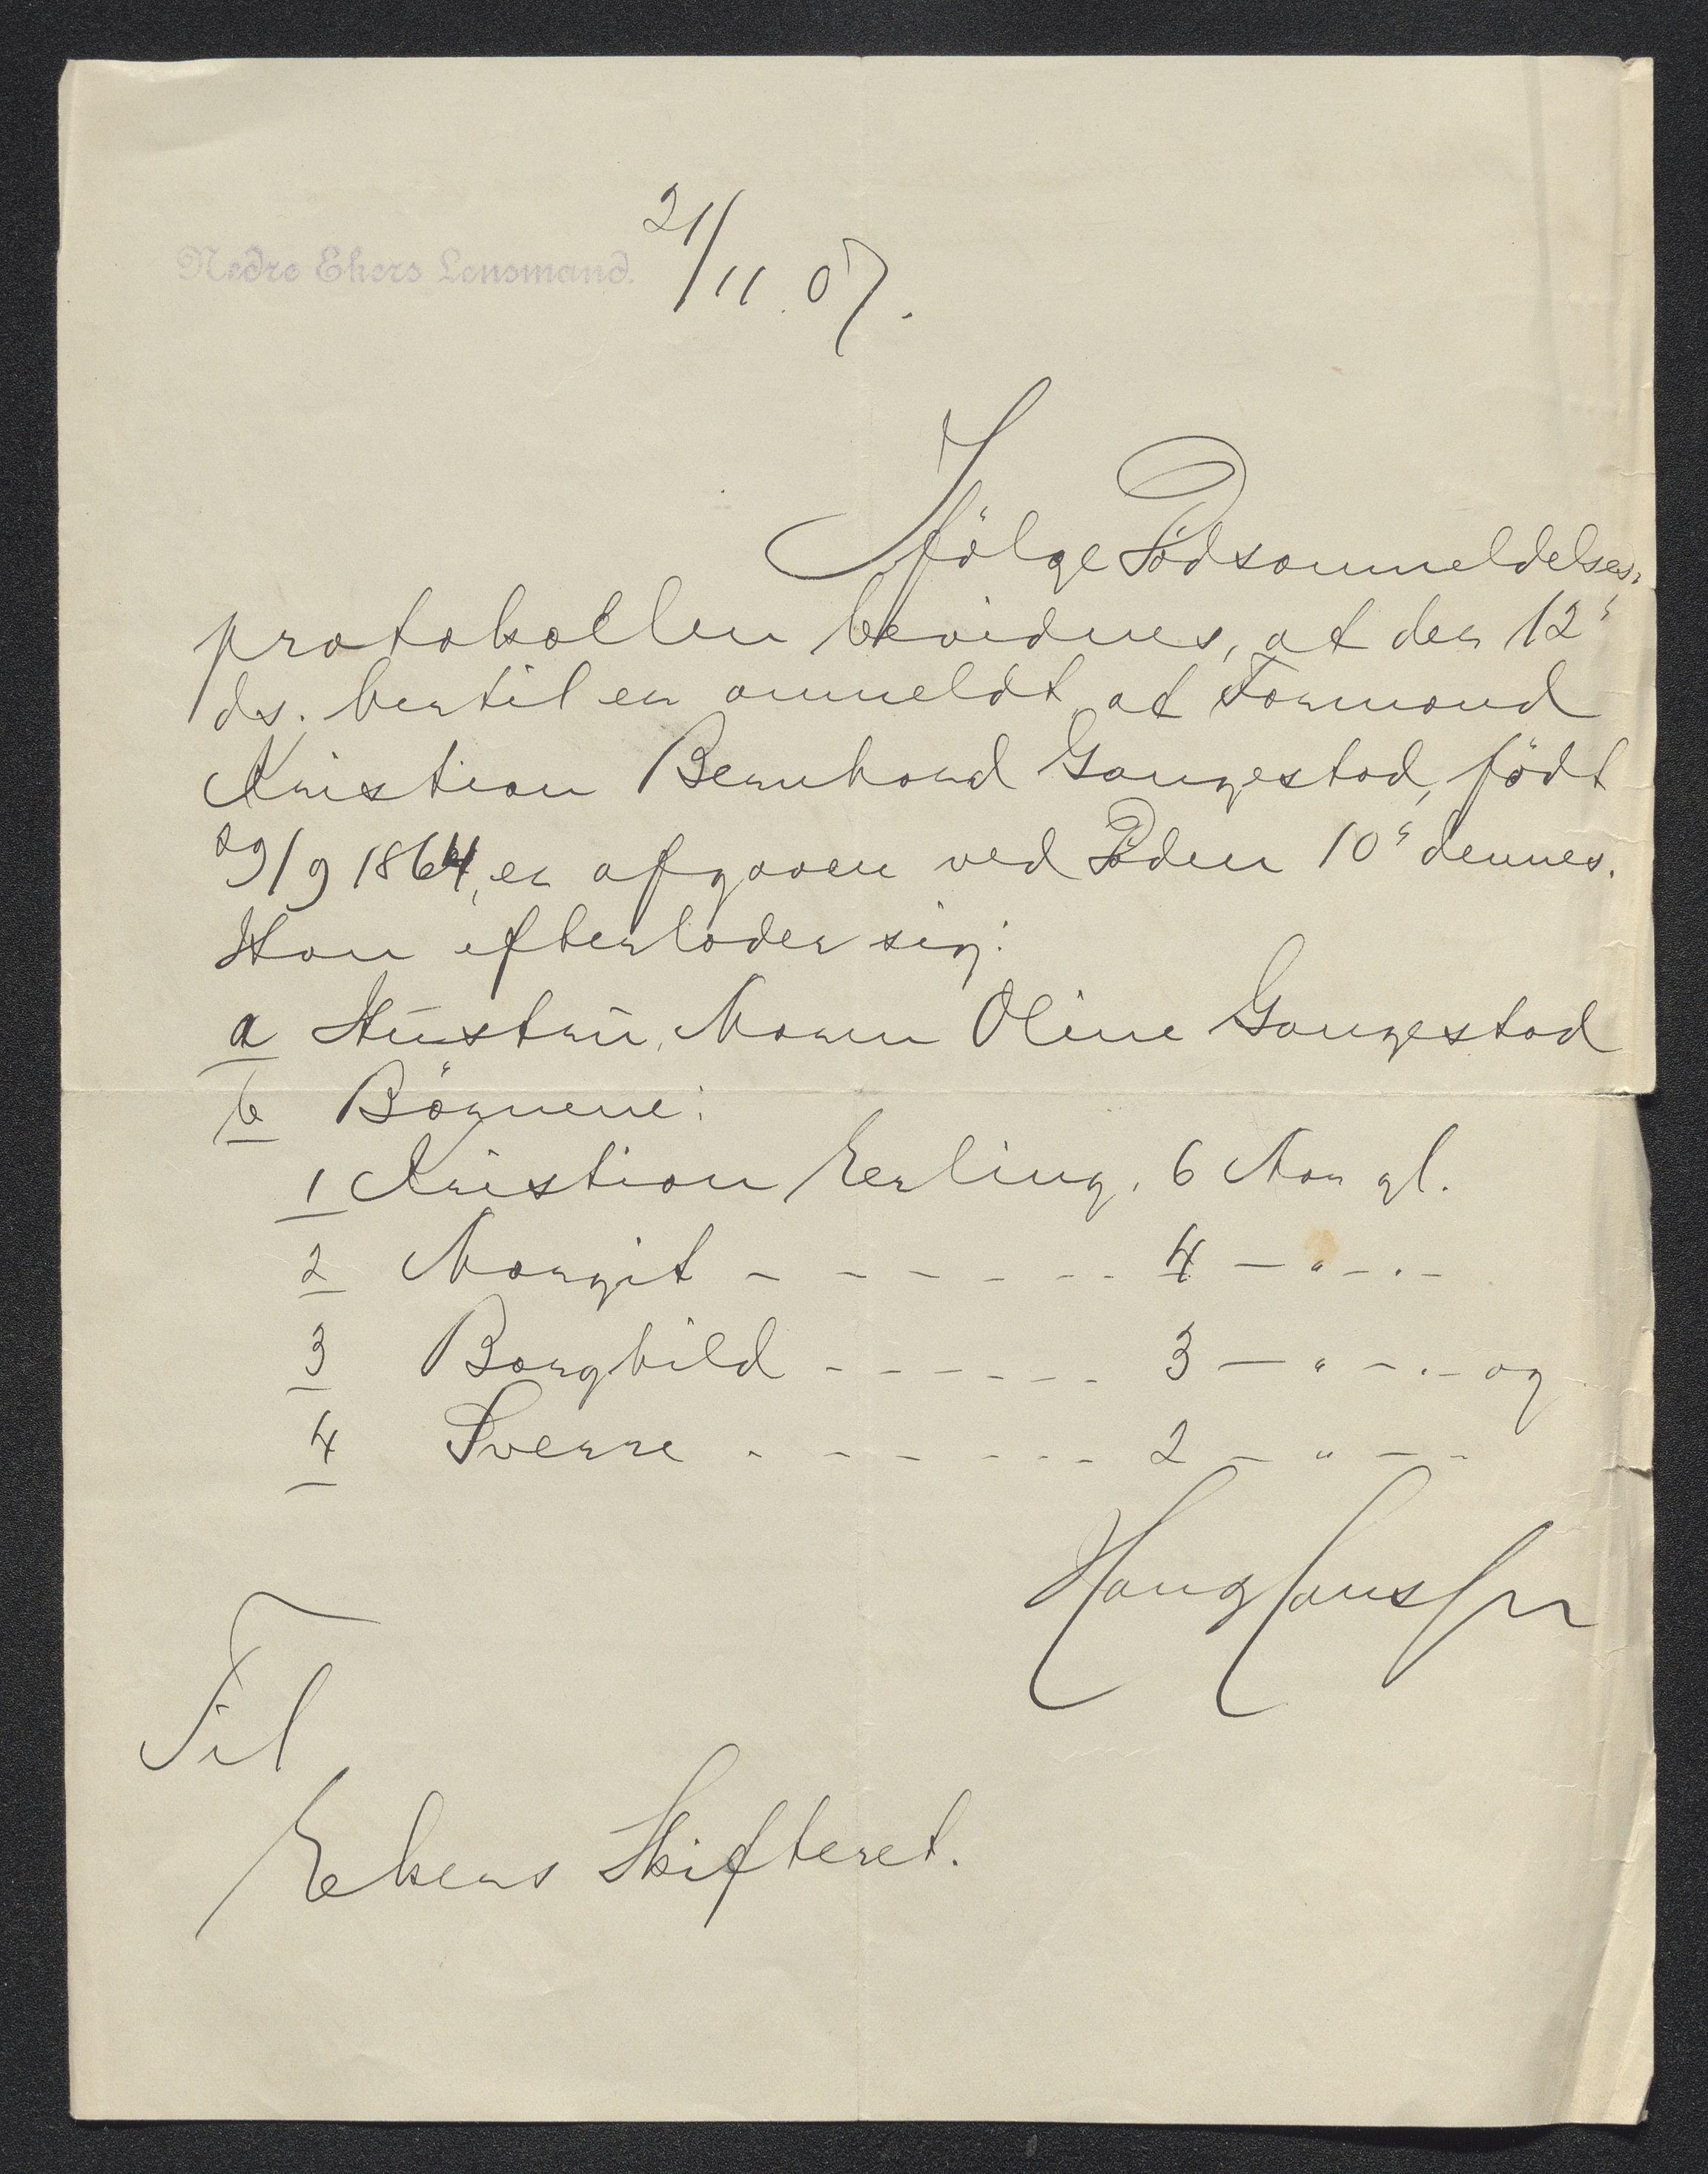 Nedre Ekers Lensmand.
21/11. 07.
Ifölge Dödsanmeldelses-
protokollen bevidnes, at der 12'
ds. hertil er anmeldt, at Formand
Kristian Bernhard Gangestad, födt
29/9 1864, er afgaaen ved Döden 10' dennes.
Han efterlader sig:
a Hustru, Maren Oline Gangestad
b Börnene:
1 Kristian Erling, 6 Aar gl.
2 Margit - - - - - - - 4 — " — . —
3 Borghild - - - - - - 3 — " — . — og
4 Sverre - - - - - - - 2 — " — —
Til
Ekers Skifteret.